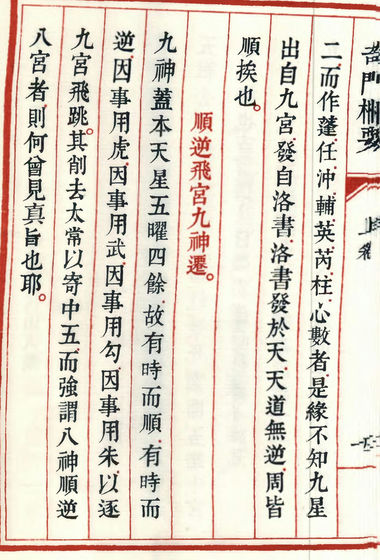 奇門樞要
上卷
二而作蓬任沖輔英芮柱心數者是緣不知九星
出自九宮發自洛書洛書發於天天道無逆周皆
順挨也。
順逆飛宮九神遷。
九神蓋本天星五曜四餘故有時而順有時而
逆因事用虎因事用武因事用勾因事用朱以逐
九宮飛跳。其削去太常以寄中五而強謂八神順逆
八宮者則何曾見真旨也耶。